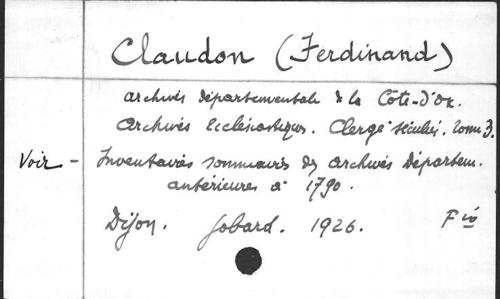 Claudon (Ferdinand)
Archives départementales de la Côte-d'Or.
Archives Ecclésiastiques. Clergé séculier. Tome 3.
Voir - Inventaires sommaires des archives départem.
antérieures à 1790.
Dijon. Jobard. 1926. Fio